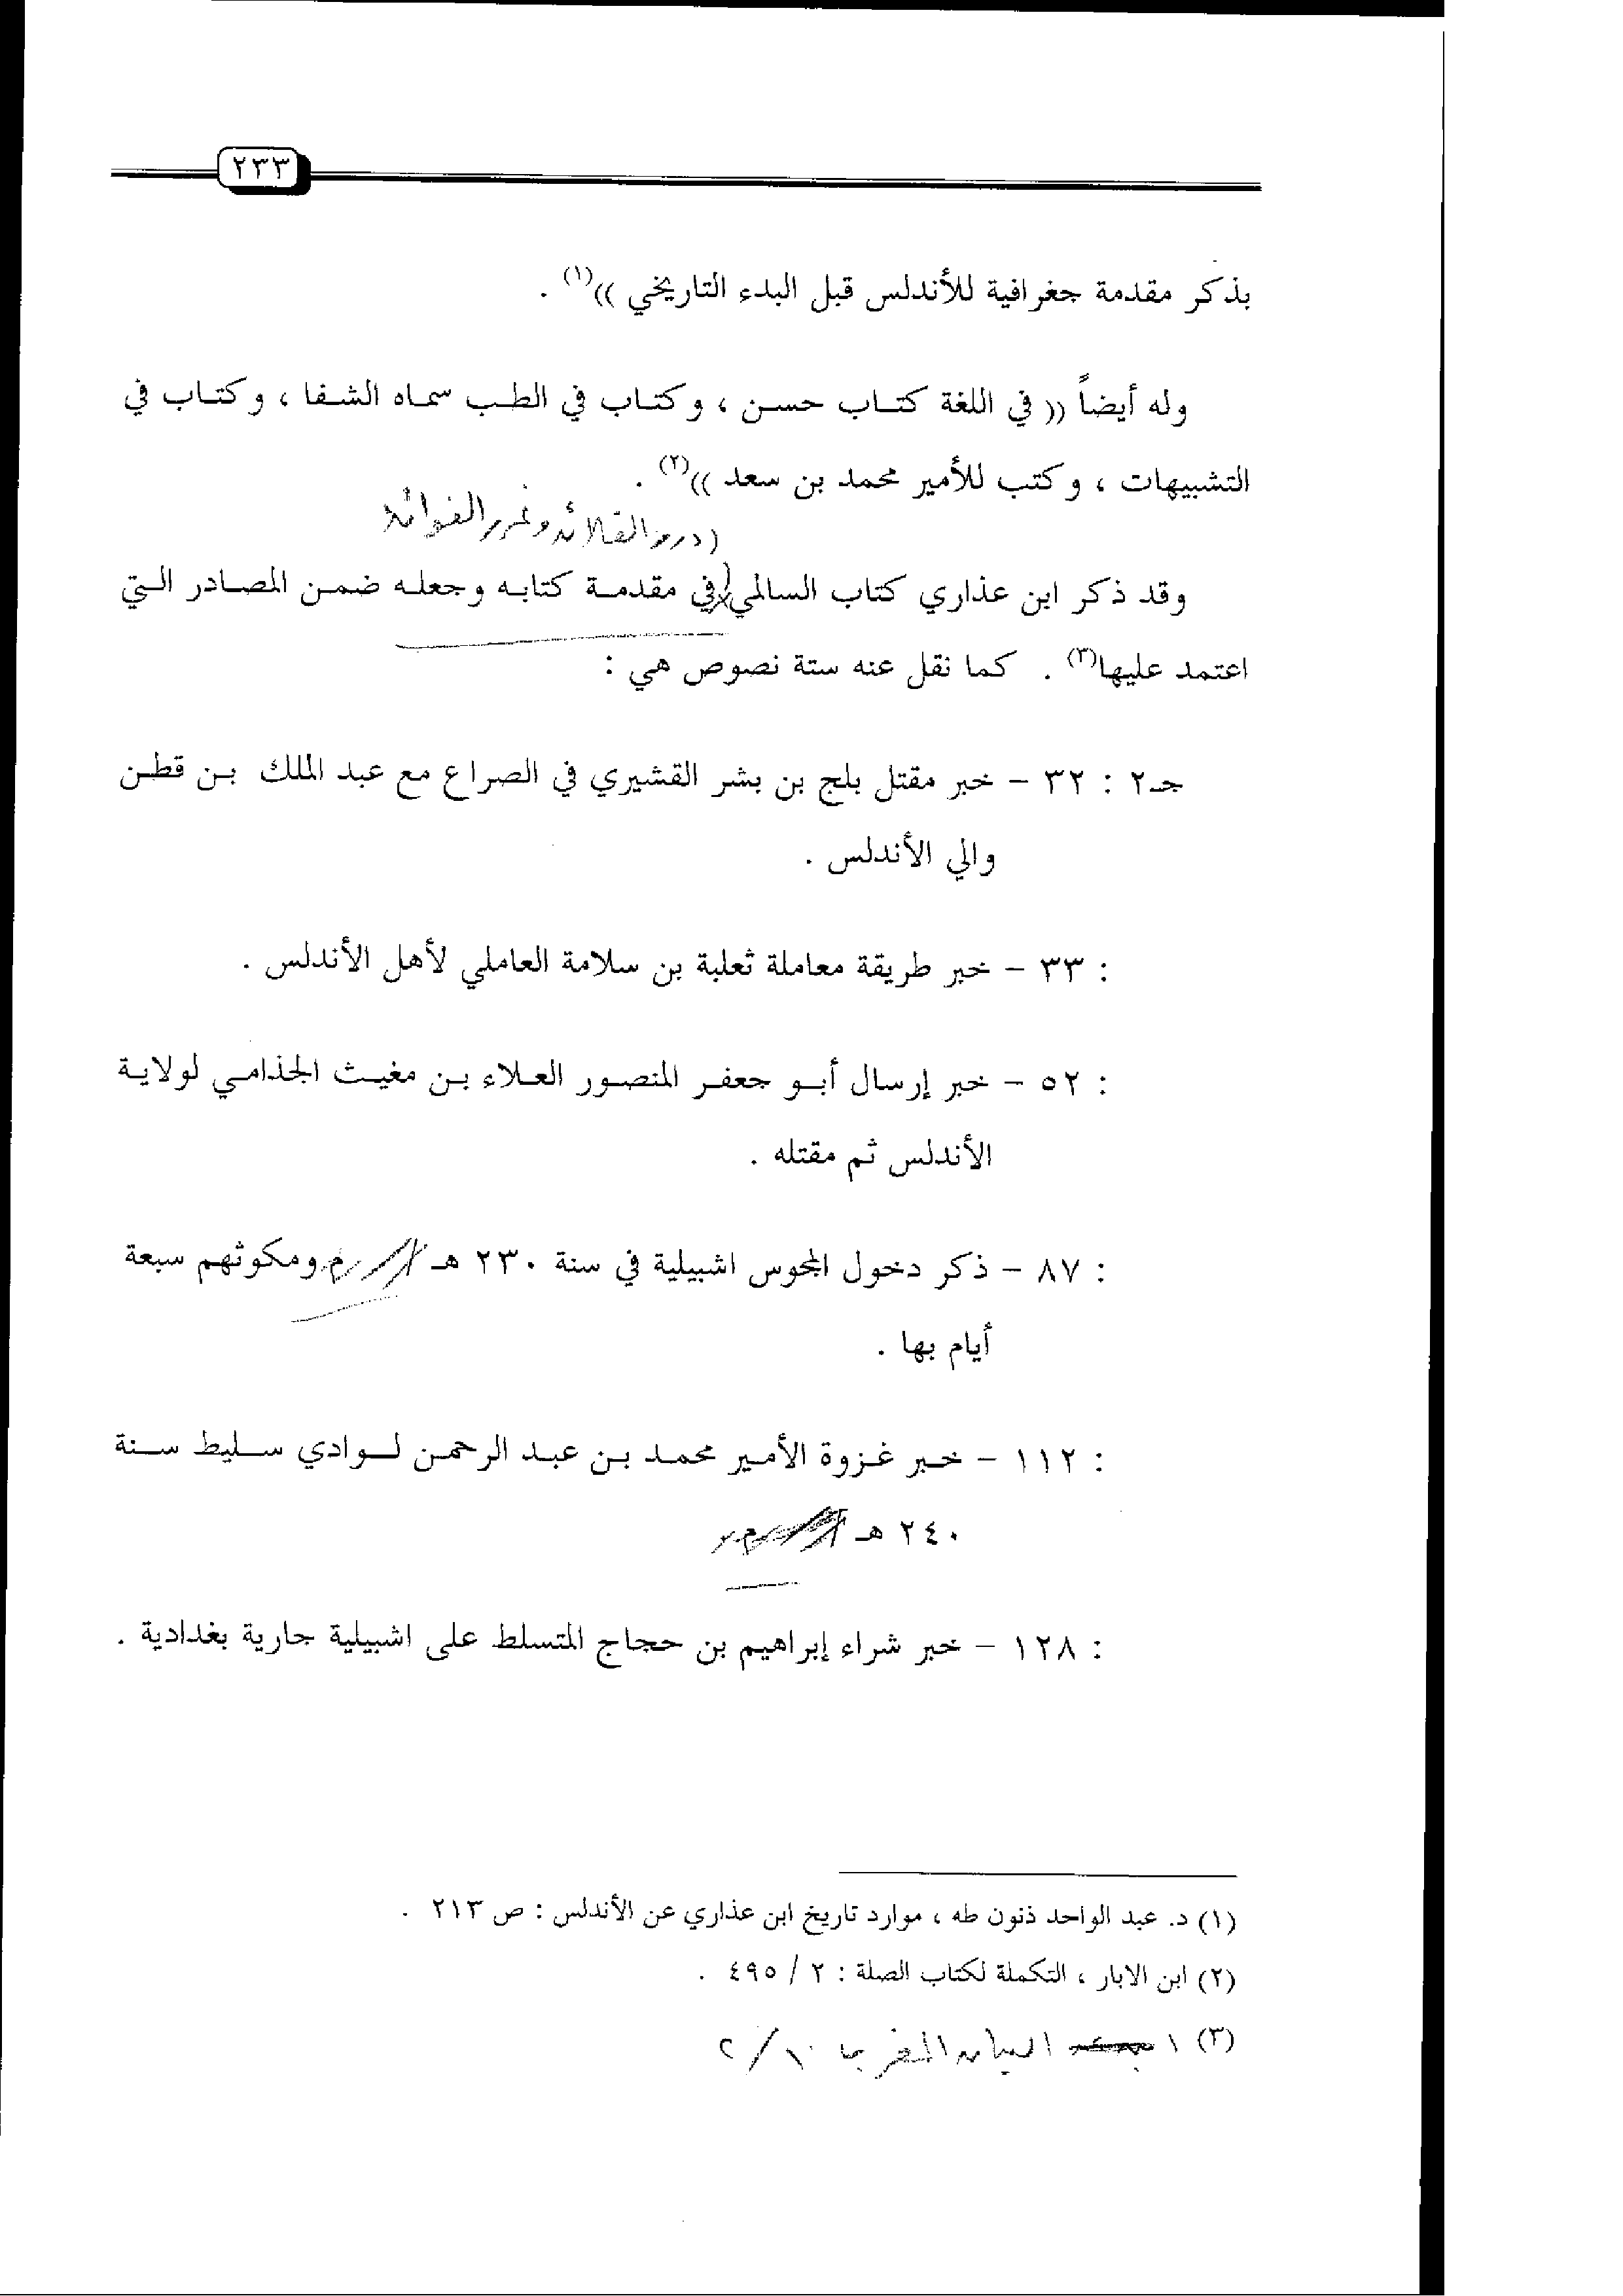 ٢٣٣
بذكر مقدمة جغرافية للأندلس قبل البدء التاريخي ))(١) .
وله أيضاً (( في اللغة كتاب حسن ، وكتاب في الطب سماه الشفا ، وكتاب في
التشبيهات ، وكتب للأمير محمد بن سعد ))(٢) .
(درر القلائد وغرر الفوائد
وقد ذكر ابن عذاري كتاب السالمي في مقدمة كتابه وجعله ضمن المصادر التي
اعتمد عليها(٣) . كما نقل عنه ستة نصوص هي :
جـ٢ : ٣٢ – خبر مقتل بلج بن بشر القشيري في الصراع مع عبد الملك بن قطن
والي الأندلس .
: ٣٣ – خبر طريقة معاملة ثعلبة بن سلامة العاملي لأهل الأندلس .
: ٥٢ – خبر إرسال أبو جعفر المنصور العلاء بن مغيث الجذامي لولاية
الأندلس ثم مقتله .
: ٨٧ – ذكر دخول المجوس اشبيلية في سنة ٢٣٠ هـ ومكوثهم سبعة
أيام بها .
: ١١٢ – خبر غزوة الأمير محمد بن عبد الرحمن لوادي سليط سنة
٢٤٠ هـ
: ١٢٨ – خبر شراء إبراهيم بن حجاج المتسلط على اشبيلية جارية بغدادية .
(١) د. عبد الواحد ذنون طه ، موارد تاريخ ابن عذاري عن الأندلس : ص ٢١٣ .
(٢) ابن الابار ، التكملة لكتاب الصلة : ٢ / ٤٩٥ .
(٣) البيان المغرب